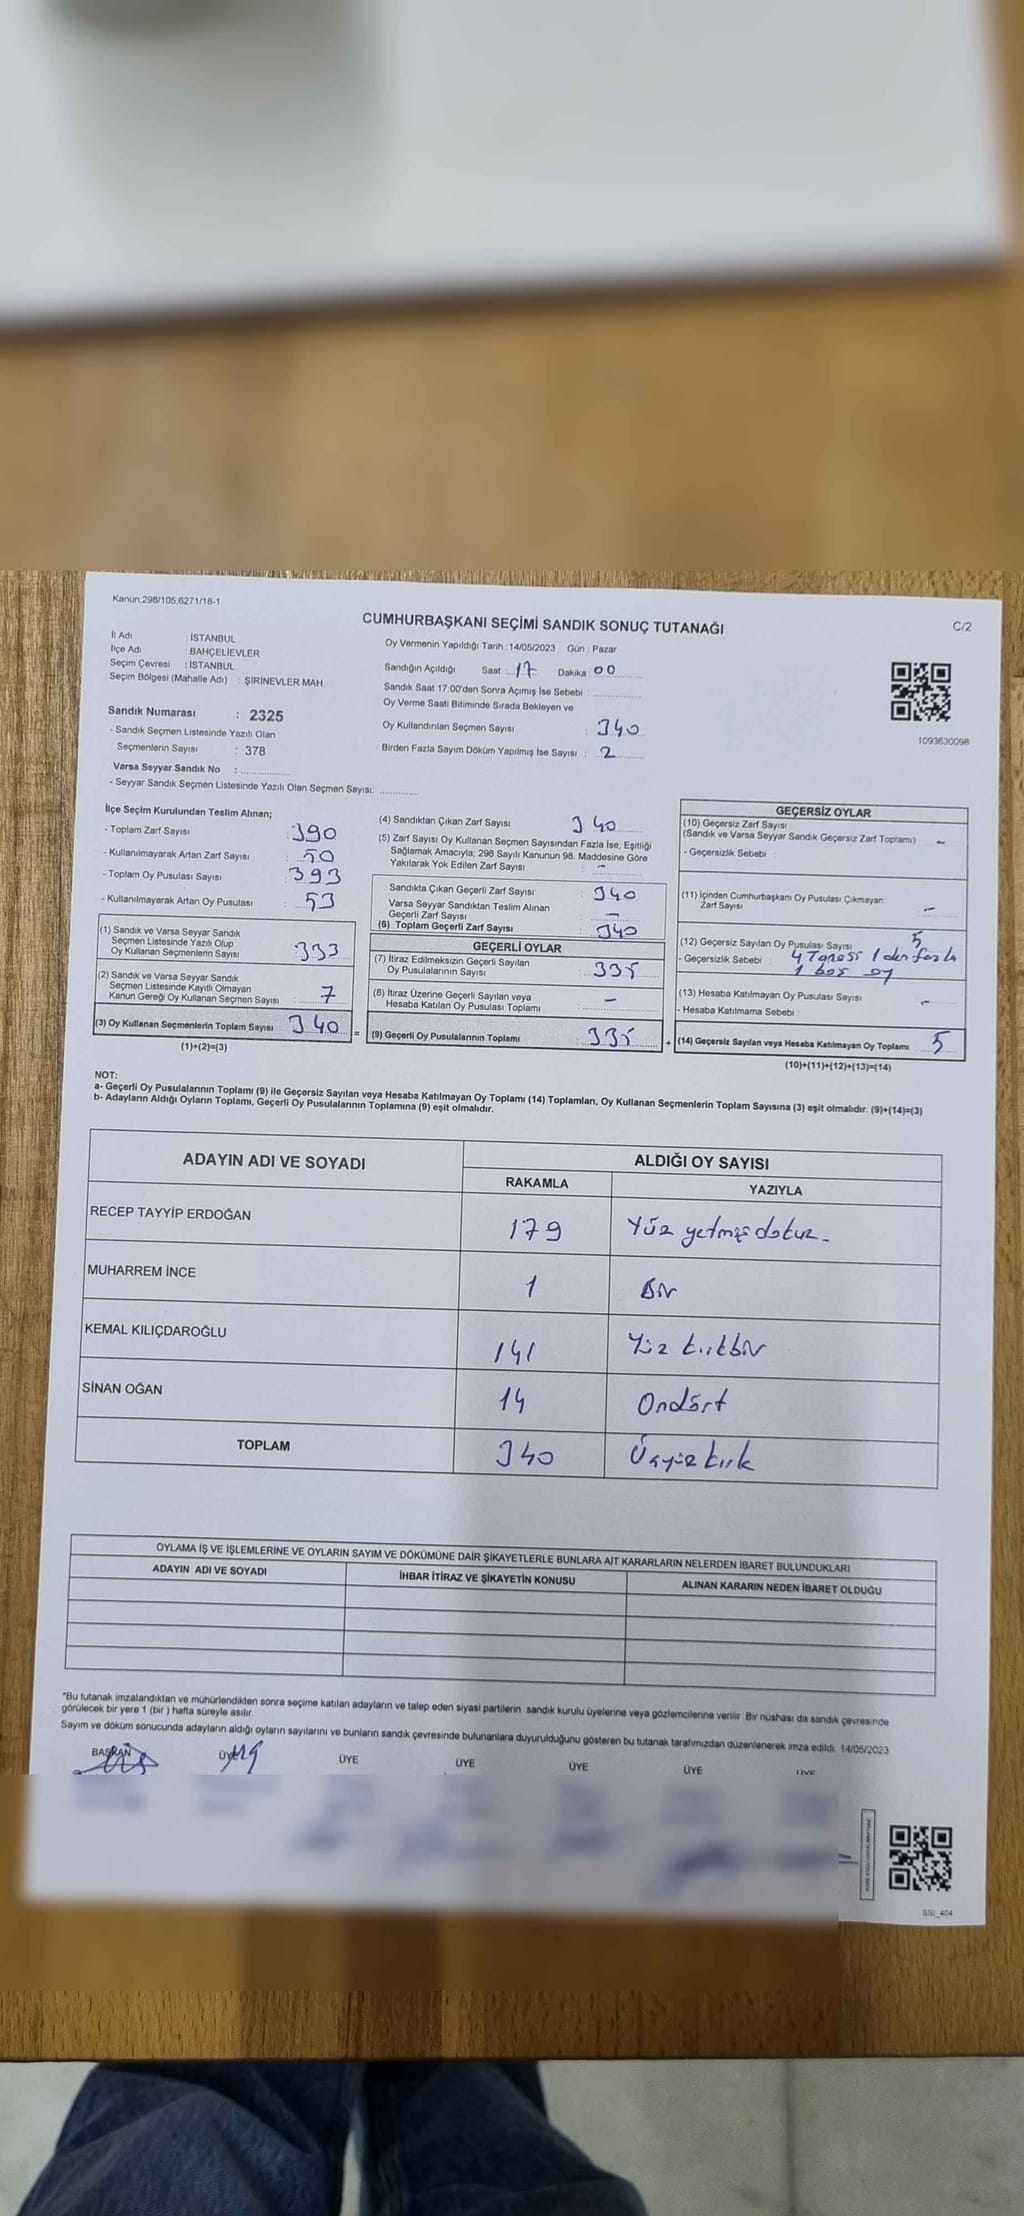 Kanun,298/105,6271/18-1
CUMHURBAŞKANI SEÇİMİ SANDIK SONUÇ TUTANAĞI
C/2
İl Adı : İSTANBUL
İlçe Adı : BAHÇELİEVLER
Seçim Çevresi : İSTANBUL
Seçim Bölgesi (Mahalle Adı) : ŞİRİNEVLER MAH.
Oy Vermenin Yapıldığı Tarih :14/05/2023 Gün : Pazar
Sandığın Açıldığı Saat : 17 Dakika : 00
Sandık Saat 17:00'den Sonra Açımış İse Sebebi :
Oy Verme Saati Bitiminde Sırada Bekleyen ve
Oy Kullandırılan Seçmen Sayısı : 340
Birden Fazla Sayım Döküm Yapılmış İse Sayısı : 2
1093630098
Sandık Numarası : 2325
- Sandık Seçmen Listesinde Yazılı Olan
Seçmenlerin Sayısı : 378
Varsa Seyyar Sandık No :
- Seyyar Sandık Seçmen Listesinde Yazılı Olan Seçmen Sayısı:
İlçe Seçim Kurulundan Teslim Alınan;
- Toplam Zarf Sayısı : 390
- Kullanılmayarak Artan Zarf Sayısı : 50
- Toplam Oy Pusulası Sayısı : 393
- Kullanılmayarak Artan Oy Pusulası : 53
(1) Sandık ve Varsa Seyyar Sandık
Seçmen Listesinde Yazılı Olup
Oy Kullanan Seçmenlerin Sayısı : 333
(2) Sandık ve Varsa Seyyar Sandık
Seçmen Listesinde Kayıtlı Olmayan
Kanun Gereği Oy Kullanan Seçmen Sayısı : 7
(3) Oy Kullanan Seçmenlerin Toplam Sayısı 340
(1)+(2)=(3)
=
(4) Sandıktan Çıkan Zarf Sayısı 340
(5) Zarf Sayısı Oy Kullanan Seçmen Sayısından Fazla İse, Eşitliği
Sağlamak Amacıyla; 298 Sayılı Kanunun 98. Maddesine Göre
Yakılarak Yok Edilen Zarf Sayısı : -
Sandıkta Çıkan Geçerli Zarf Sayısı : 340
Varsa Seyyar Sandıktan Teslim Alınan
Geçerli Zarf Sayısı : -
(6) Toplam Geçerli Zarf Sayısı : 340
GEÇERLİ OYLAR
(7) İtiraz Edilmeksizin Geçerli Sayılan
Oy Pusulalarının Sayısı : 335
(8) İtiraz Üzerine Geçerli Sayılan veya
Hesaba Katılan Oy Pusulası Toplamı : -
(9) Geçerli Oy Pusulalarının Toplamı : 335
+
GEÇERSİZ OYLAR
(10) Geçersiz Zarf Sayısı
(Sandık ve Varsa Seyyar Sandık Geçersiz Zarf Toplamı) : -
- Geçersizlik Sebebi :
(11) İçinden Cumhurbaşkanı Oy Pusulası Çıkmayan
Zarf Sayısı : -
(12) Geçersiz Sayılan Oy Pusulası Sayısı : 5
- Geçersizlik Sebebi : 4 Tanesi 1 den fazla
1 boş oy
(13) Hesaba Katılmayan Oy Pusulası Sayısı : -
- Hesaba Katılmama Sebebi :
(14) Geçersiz Sayılan veya Hesaba Katılmayan Oy Toplamı : 5
(10)+(11)+(12)+(13)=(14)
NOT:
a- Geçerli Oy Pusulalarının Toplamı (9) ile Geçersiz Sayılan veya Hesaba Katılmayan Oy Toplamı (14) Toplamları, Oy Kullanan Seçmenlerin Toplam Sayısına (3) eşit olmalıdır. (9)+(14)=(3)
b- Adayların Aldığı Oyların Toplamı, Geçerli Oy Pusulalarının Toplamına (9) eşit olmalıdır.
ADAYIN ADI VE SOYADI
ALDIĞI OY SAYISI
RAKAMLA YAZIYLA
RECEP TAYYİP ERDOĞAN 179 Yüz yetmiş dokuz
MUHARREM İNCE 1 Bir
KEMAL KILIÇDAROĞLU 141 Yüz kırkbir
SİNAN OĞAN 14 Ondört
TOPLAM 340 Üçyüz kırk
OYLAMA İŞ VE İŞLEMLERİNE VE OYLARIN SAYIM VE DÖKÜMÜNE DAİR ŞİKAYETLERLE BUNLARA AİT KARARLARIN NELERDEN İBARET BULUNDUKLARI
ADAYIN ADI VE SOYADI İHBAR İTİRAZ VE ŞİKAYETİN KONUSU ALINAN KARARIN NEDEN İBARET OLDUĞU
*Bu tutanak imzalandıktan ve mühürlendikten sonra seçime katılan adayların ve talep eden siyasi partilerin sandık kurulu üyelerine veya gözlemcilerine verilir. Bir nüshası da sandık çevresinde
görülecek bir yere 1 (bir ) hafta süreyle asılır.
Sayım ve döküm sonucunda adayların aldığı oyların sayılarını ve bunların sandık çevresinde bulunanlara duyurulduğunu gösteren bu tutanak tarafımızdan düzenlenerek imza edildi. 14/05/2023
BAŞKAN ÜYE ÜYE ÜYE ÜYE ÜYE ÜYE
SSI_404